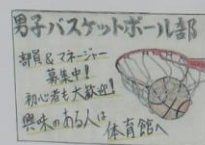 男子バスケットボール部
部員&マネージャー
募集中!
初心者も大歓迎!
興味のある人は
体育館へ